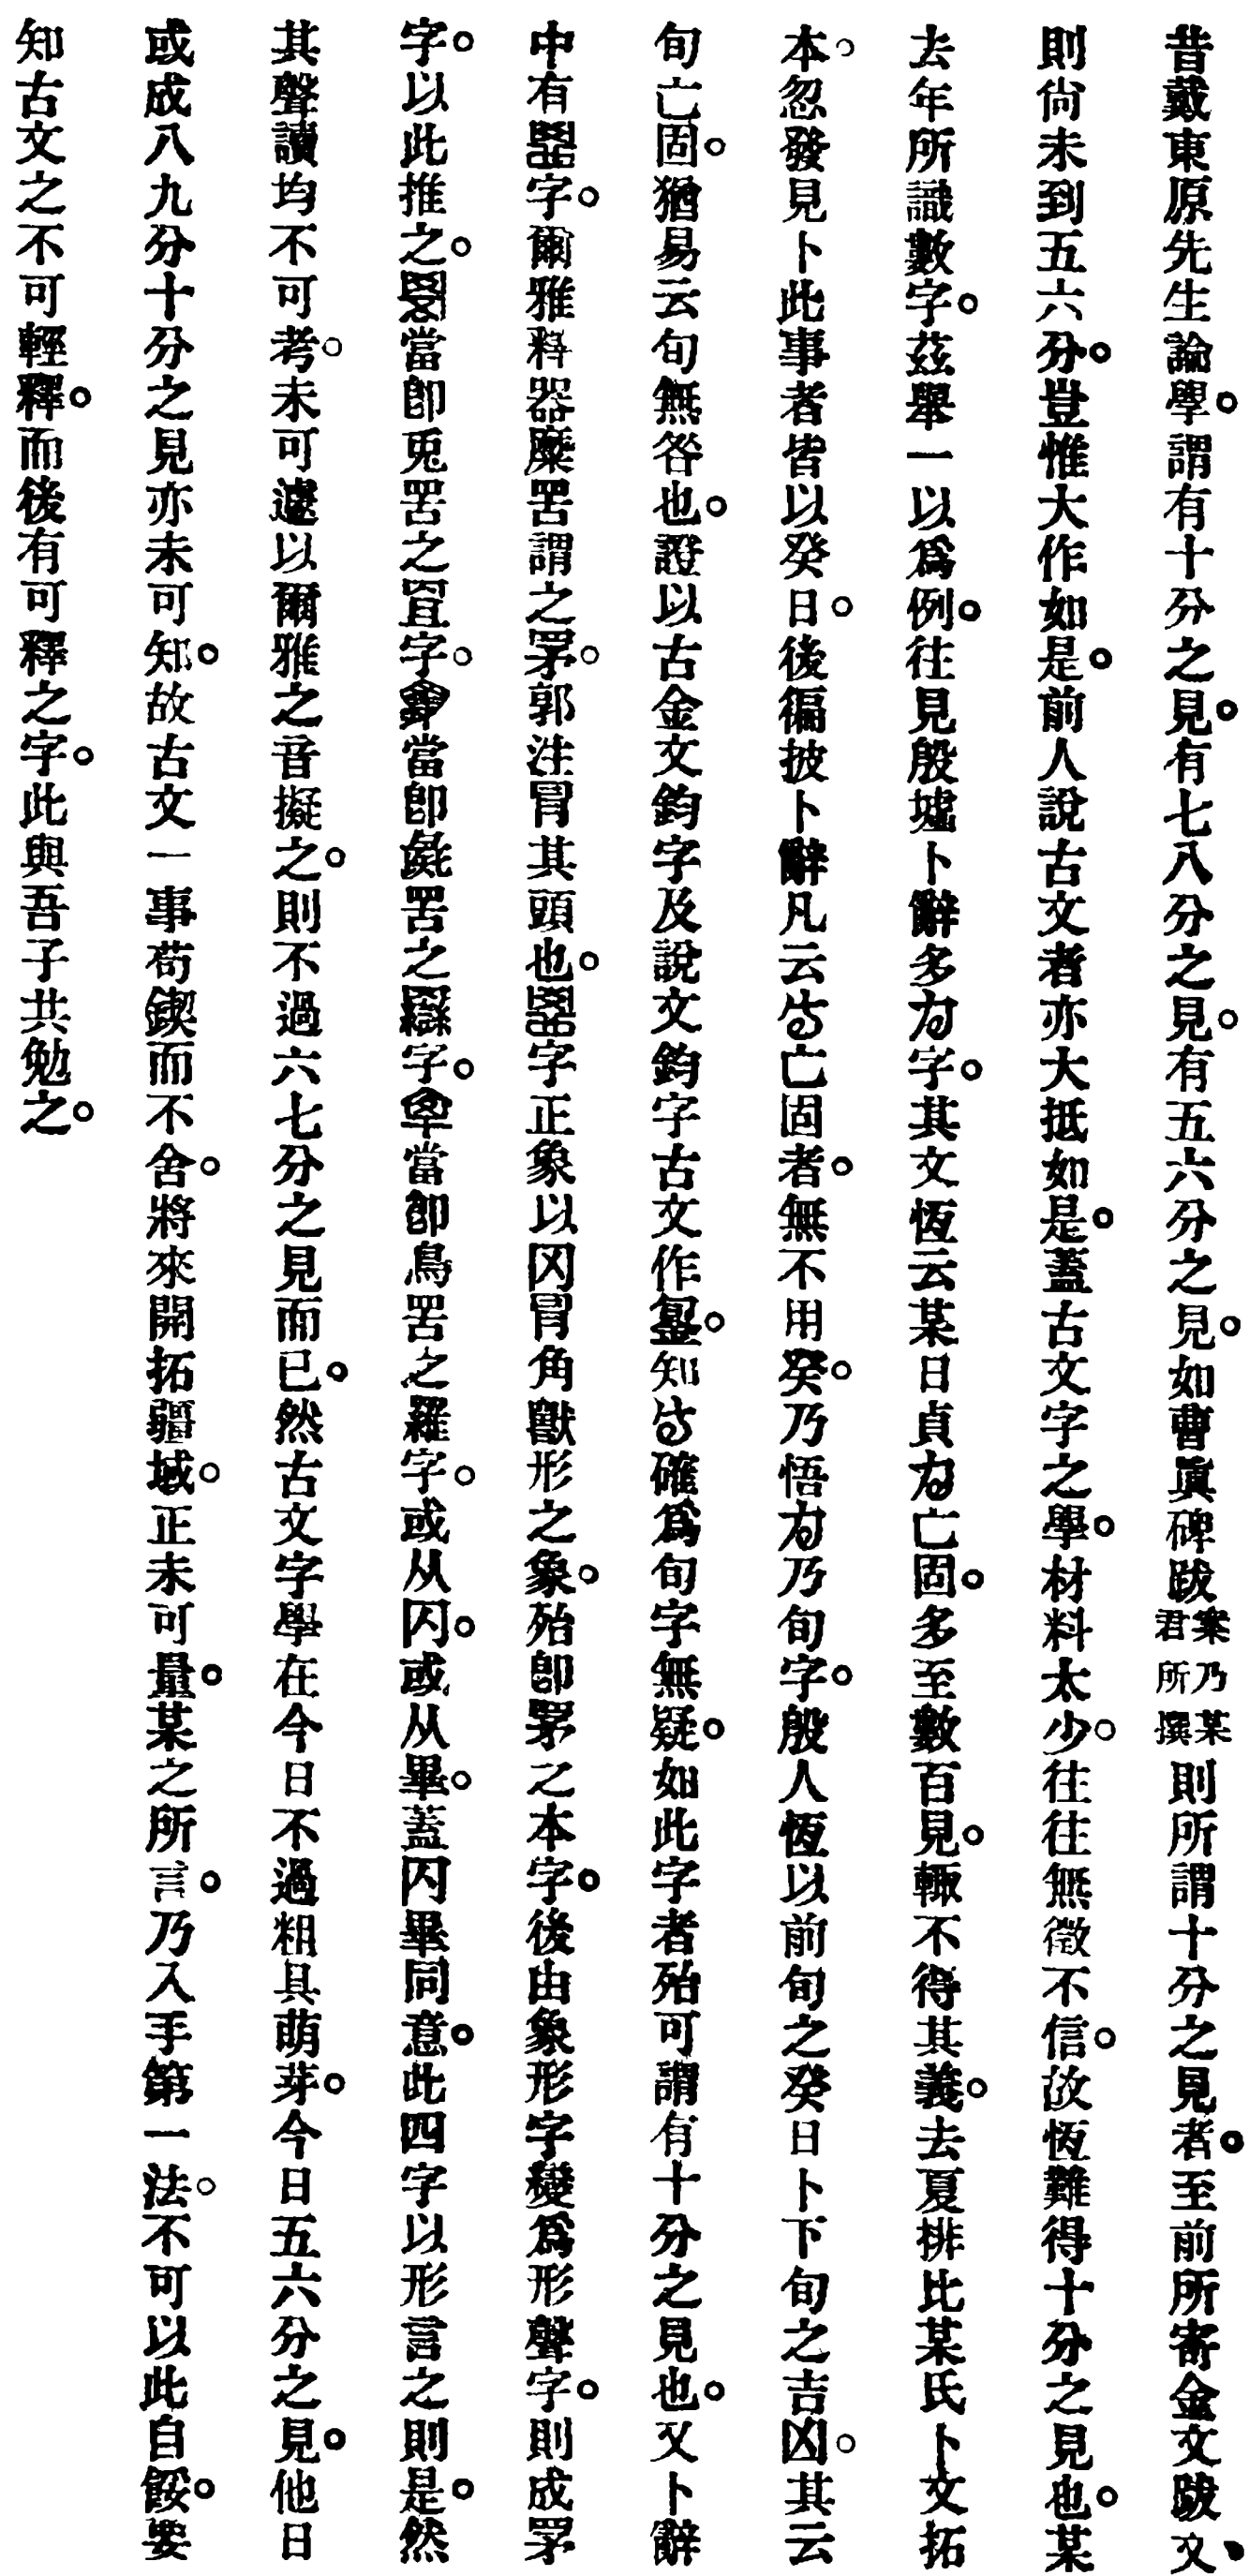 昔戴東原先生論學。謂有十分之見。有七八分之見。有五六分之見。如曹眞碑跋案乃某君所撰則所謂十分之見者。至前所寄金文跋文、
則尙未到五六分。豈惟大作如是。前人說古文者亦大抵如是。蓋古文字之學。材料太少。往往無徵不信。故恆難得十分之見也。某
去年所識數字。茲舉一以爲例。往見殷墟卜辭多字。其文恆云某日貞亡固。多至數百見。輒不得其義。去夏排比某氏卜文拓
本。忽發見卜此事者皆以癸日。後徧披卜辭凡云亡固者。無不用癸。乃悟乃旬字。殷人恆以前旬之癸日卜下旬之吉凶。其云
旬亡固。猶易云旬無咎也。證以古金文鈞字及說文鈞字古文作。知確爲旬字無疑。如此字者殆可謂有十分之見也。又卜辭
中有字。爾雅釋器麋罟謂之罞。郭注冒其頭也。字正象以网冒角獸形之象。殆卽罞之本字。後由象形字變爲形聲字。則成罞
字。以此推之。當卽兎罟之罝字。當卽彘罟之羉字。當卽鳥罟之羅字。或从网。或从畢。蓋网畢同意。此四字以形言之則是。然
其聲讀均不可考。未可遽以爾雅之音擬之。則不過六七分之見而已。然古文字學在今日不過粗具萌芽。今日五六分之見。他日
或成八九分十分之見亦未可知。故古文一事苟鍥而不舍。將來開拓疆域。正未可量。某之所言。乃入手第一法。不可以此自餒。要
知古文之不可輕釋。而後有可釋之字。此與吾子共勉之。